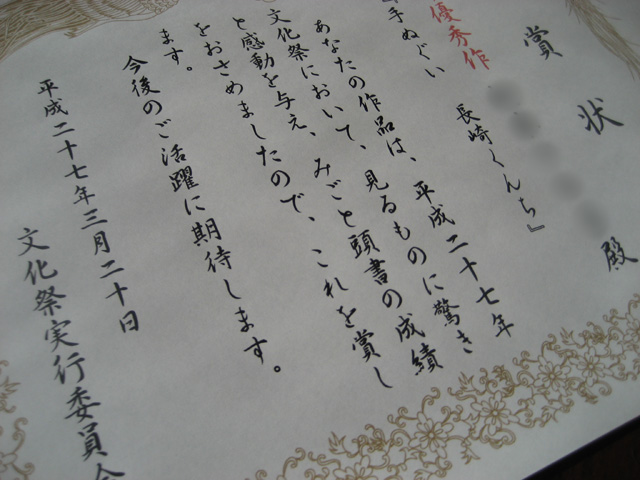 賞状
殿
優秀作
『手ぬぐい 長崎くんち』
あなたの作品は、平成二十七年
文化祭において、見るものに驚き
と感動を与え、みごと頭書の成績
をおさめましたので、これを賞し
ます。
今後のご活躍に期待します。
平成二十七年三月二十日
文化祭実行委員会